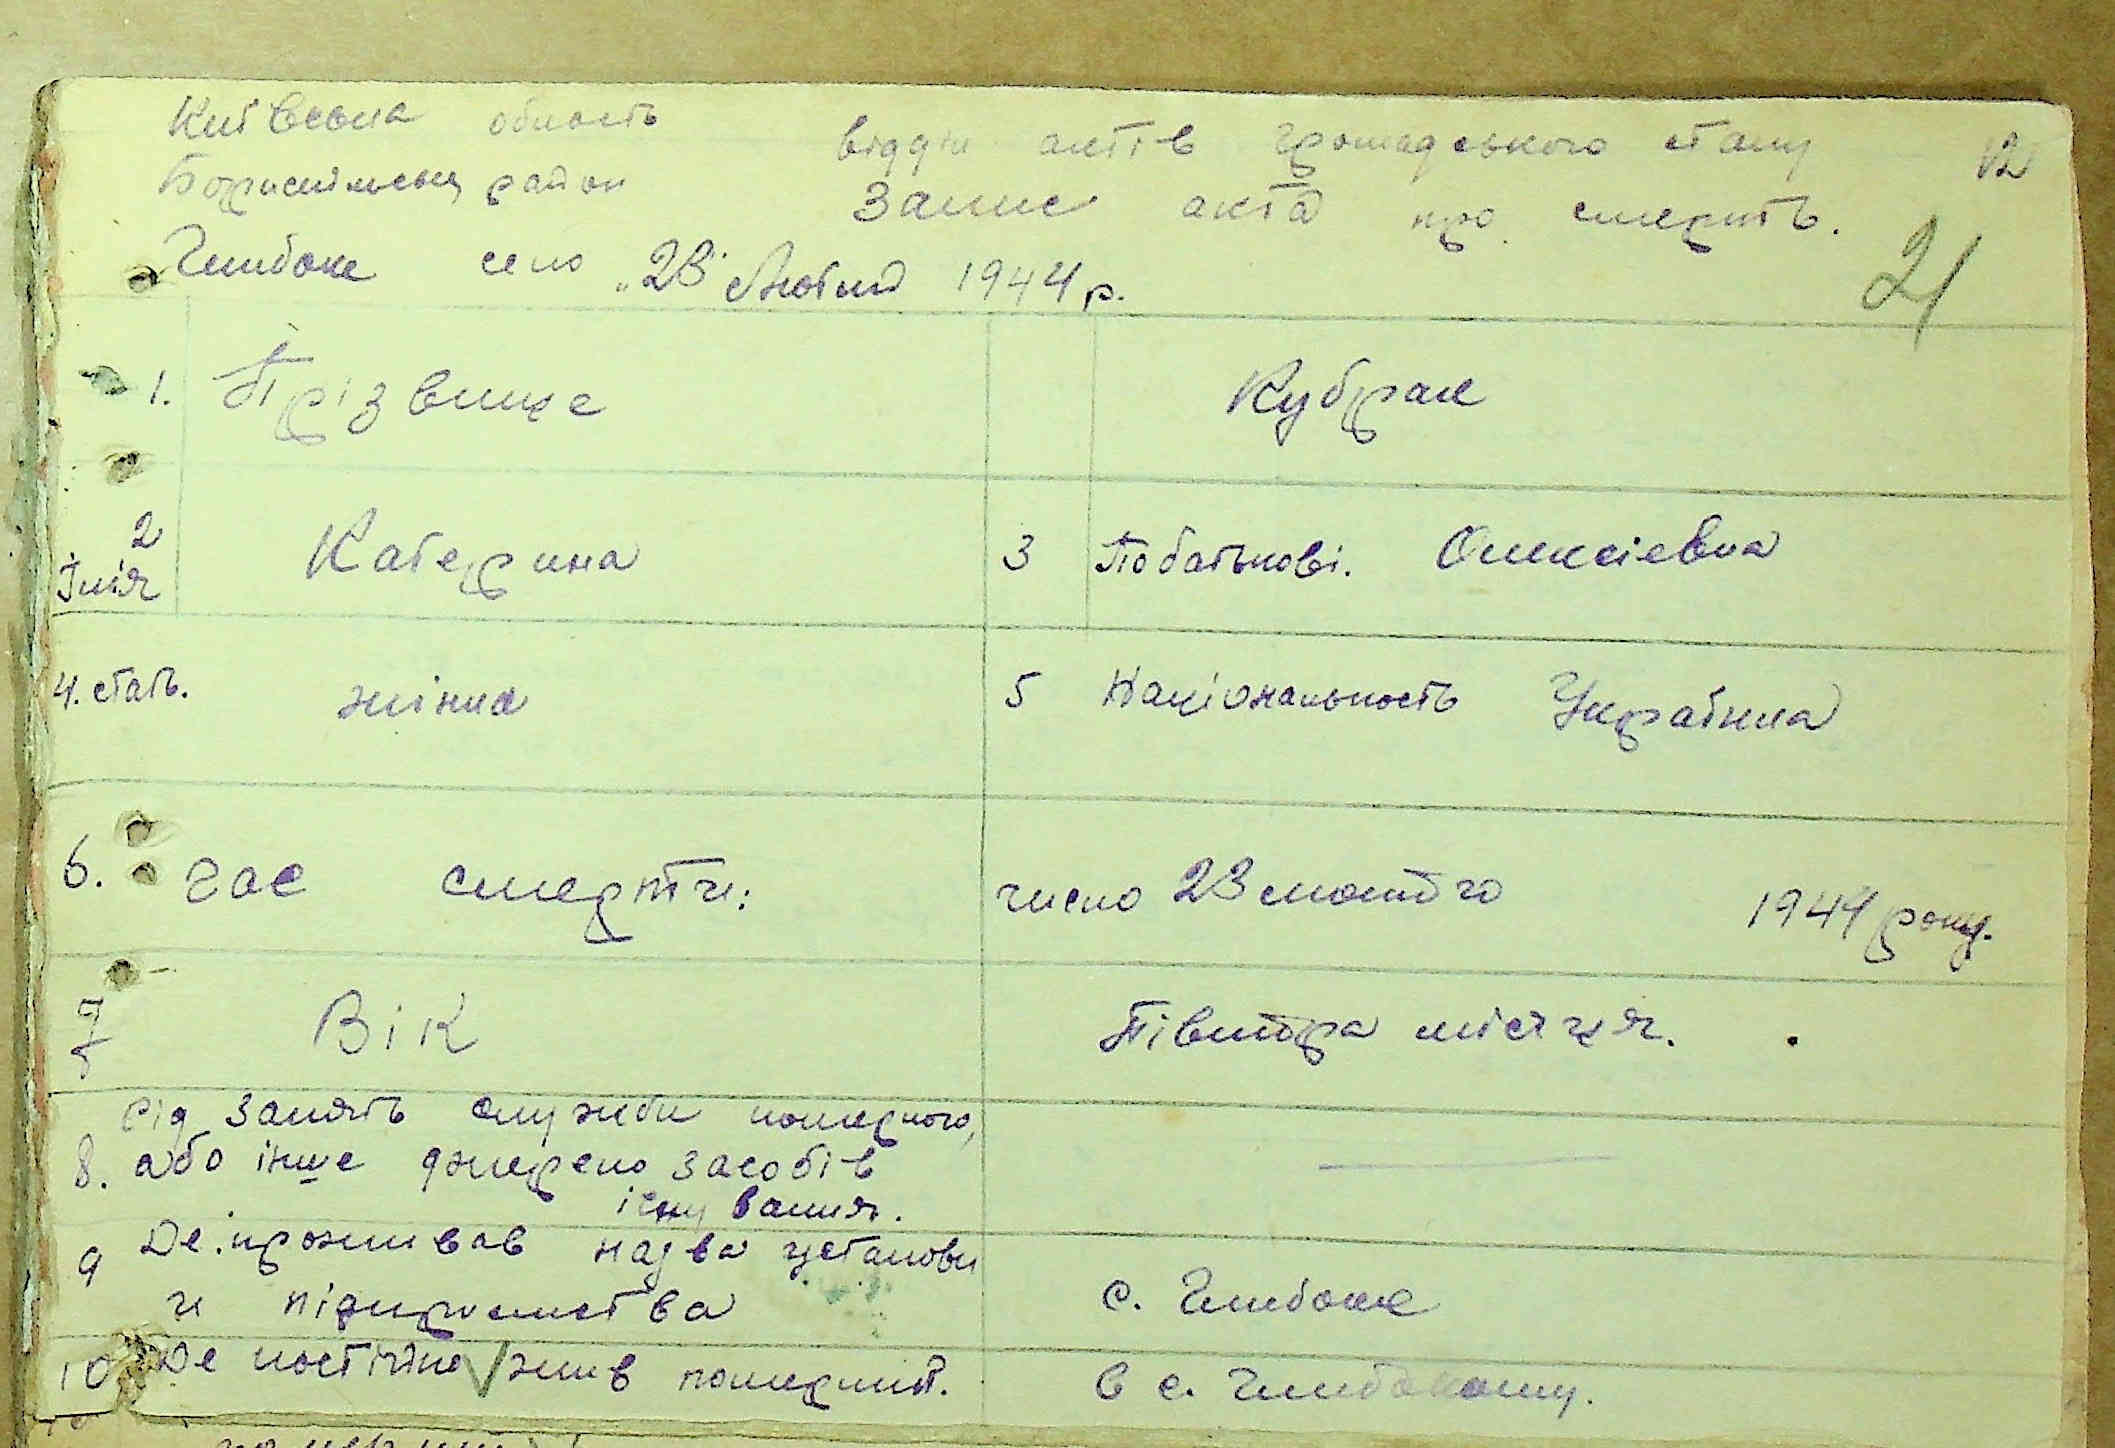 Київська область
відділ актів громадського стану
12
Бориспільськ район
Запис акта про смерть.
21
Глибоке село "23" Лютий 1944 р.
1. Прізвище Кубрак
2 Ім'я Катерина 3 По батькові. Олексієвна
4. стать. жінка 5 Національность Українка
6. Час смерти: число 23 лютого 1944 року.
7 Вік Півтора місяця.
Рід занять служби померлого,
8. або інше джерело засобів
існування.
9 Де проживав назва установи
и підприємства с. Глибоке
10 Де постійно жив померший. в с. Глибокому.